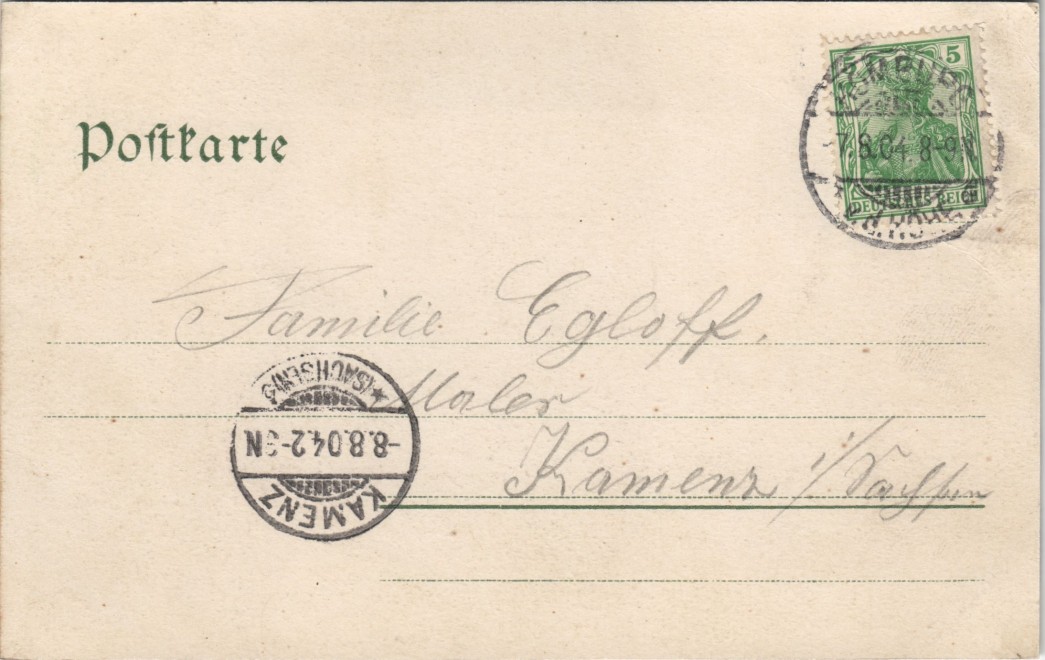 Postkarte
5 5
DEUTSCHES REICH
7.8.04. 8-9N
Familie Egloff,
Maler
Kamenz i/Sachsen
*(SACHSEN)
-8.8.04.2-3N
KAMENZ